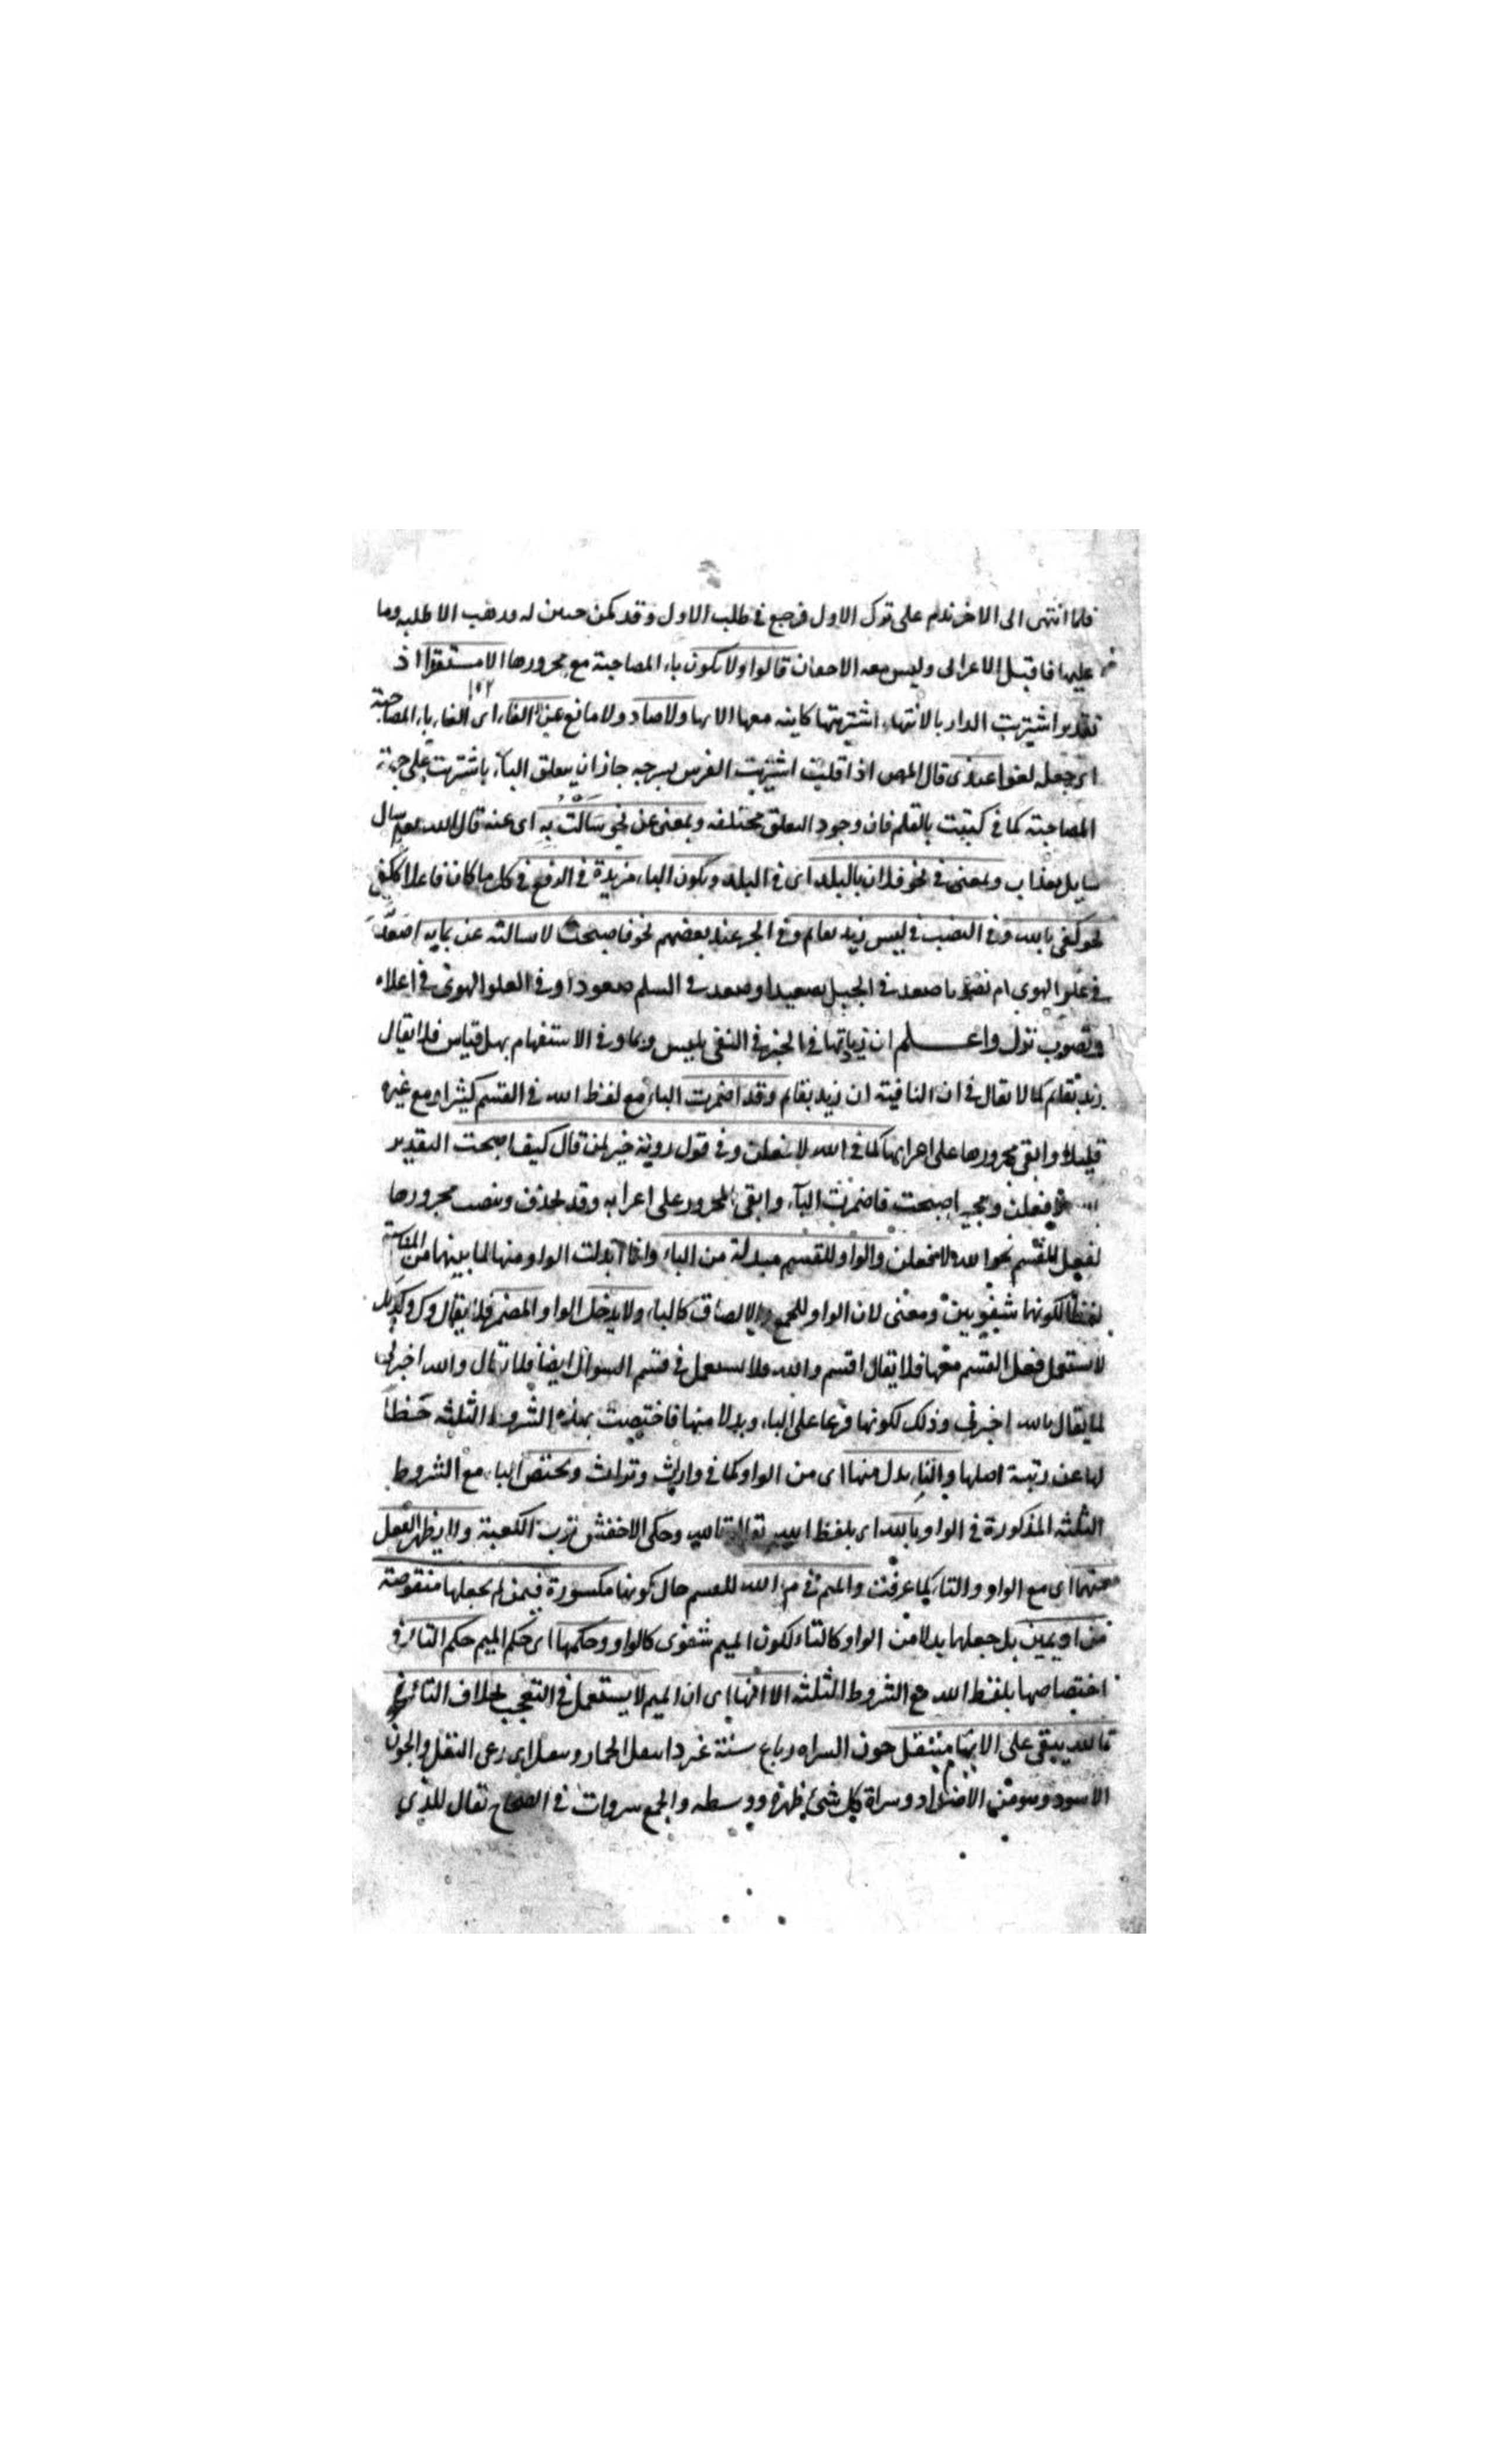 فلما انتهى الى الاخر ندم على ترك الاول فرجع فى طلب الاول وقد كمن حنين له وذهب الاطلبه وما
عليها فاقبل الاعرابى وليس معه الاخفان قالوا ولا يكون باء المصاحبة مع مجرورها الا مستقرا اذ
تقدير اشتريت الدار بالاتها اشتريتها كاينه معها الاتها ولاصاد ولا مانع عن الغاء اى الغاء باء المصاحبة
اى جعله لغوا عندى قال المص اذا قلت اشتريت الفرس بسرجه جاز ان يتعلق الباء باشتريت على جهة
المصاحبة كما فى كتبت بالقلم فان وجود التعلق مختلفه وبمعنى عن نحو سَأَلْتُ بِهِ اى عنه قال الله تعالى سال
سايل بعذاب وبمعنى فى نحو فلان بالبلد اى فى البلد ويكون الباء مزيدة فى الرفع فى كل ما كان فاعلا لكفى
نحو كفى بالله وفى النصب فى ليس زيد بقايم وفى الجر عند بعضهم نحو فاصبحت لا سالته عن بمابه اصعّد
فى علو الهوى ام تصوبا صعد فى الجبل تصعيدا وصعد فى السلم صعودا وفى العلو الهوى فى اعلاه
وتصوب نزل واعلم ان زيادتها فى الخبر فى النفى بليس وبما وفى الاستفهام بهل قياس فلا يقال
زيد بقايم كما لا يقال فى ان النافية ان زيد بقايم وقد اضمرت الباء مع لفظ الله فى القسم كثيرا ومع غيره
قليلا وابقى مجرورها على اعرابها كما فى الله لافعلن وفى قول روبة خير لمن قال كيف اصبحت التقدير
لافعلن وبخير اصبحت فاضمرت الباء وابقى المجرور على اعرابه وقد تحذف وينصب مجرورها
لفعل القسم نحو الله لافعلن والواو للقسم مبدلة من الباء وانما ابدلت الواو منها لما بينهما من المناسبة
لفظا لكونهما شفويين ومعنى لان الواو للجمع والالصاق كالباء ولا يدخل الواو المضمر فلا يقال وك وكذلك
لا يستعمل فعل القسم معها فلا يقال اقسم والله ولا يستعمل فى قسم السوال ايضا فلا يقال والله اخبرنى
كما يقال بالله اخبرنى وذلك لكونها فرعا على الباء وبدلا منها فاختصت بهذه الشروط الثلثة حطا
لها عن رتبة اصلها والتاء بدل منها اى من الواو كما فى وارث وتراث ويختص الباء مع الشروط
الثلثه المذكورة فى الواو بالله اى بلفظ الله تعالى تالله وحكى الاخفش ترب الكعبة ولا يظهر الفعل
معهما اى مع الواو والتاء كما عرفت والميم فى م الله للقسم حال كونها مكسورة فيمن لم يجعلها منقوصة
من او يمين بل جعلها بدلا من الواو كالتاء لكون الميم شفوى كالواو وحكمها اى حكم الميم حكم التاء فى
اختصاصها بلفظ الله مع الشروط الثلثه الا انها اى ان الميم لا يستعمل فى التعجب بخلاف التاء نحو
تالله يبقى على الايام مبتقل جون السراه رباع سنه غرد ابتقل الحمار وتبقل اى رعى البقل والجون
الاسود وهو من الاضداد وسراة كل شئ ظهره ووسطه والجمع سروات فى الصحاح تقال للذى